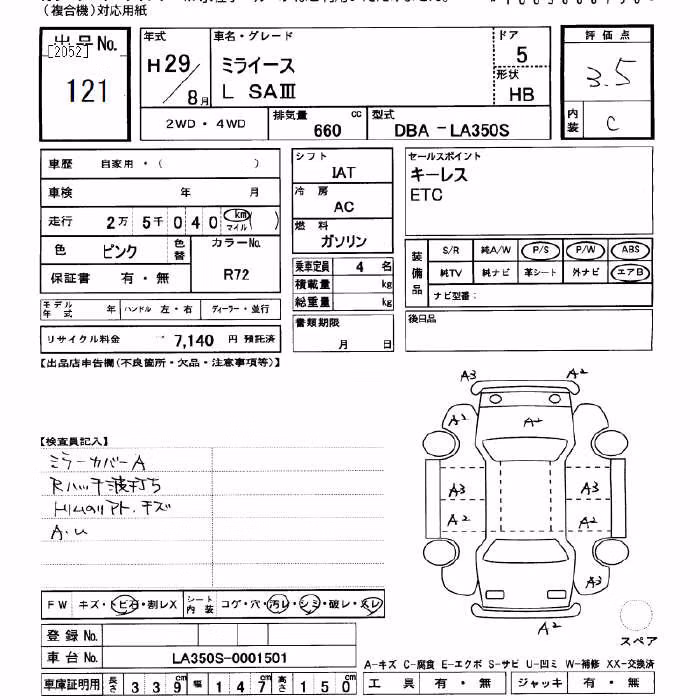 (複合機)対応用紙
出品No.
[2052]
121
年式
H29/8月
車名・グレード
ミライース
L SAⅢ
ドア
5
形状
HB
評価点
3.5
内装
C
2WD・4WD
排気量 660 cc
型式 DBA-LA350S
車歴 自家用・( )
車検 年 月
走行 2万5千040 km マイル ( )
色 ピンク 色替
カラーNo. R72
保証書 有・無
モデル年式 年 ハンドル 左・右 ディーラー・並行
リサイクル料金 7,140 円 預託済
シフト
IAT
冷房
AC
燃料
ガソリン
乗車定員 4 名
積載量 kg
総重量 kg
書類期限
月 日
セールスポイント
キーレス
ETC
装備品
S/R 純A/W P/S P/W ABS
純TV 純ナビ 革シート 外ナビ エアB
ナビ型番:
後日品
【出品店申告欄(不良箇所・欠品・注意事項等)】
A3 A2
A2 A2
A3 A3
A2 A2
A3
A2
スペア
【検査員記入】
ミラーカバーA
Rハッチ波打ち
A・U
FW キズ・トビ石・割レX
シート内装 コゲ・穴・汚レ・シミ・破レ・スレ
登録No.
車台No. LA350S-0001501
車庫証明用 長さ 339 幅 147 高さ 150
A-キズ C-腐食 E-エクボ S-サビ U-凹ミ W-補修 XX-交換済
工具 有・無 ジャッキ 有・無